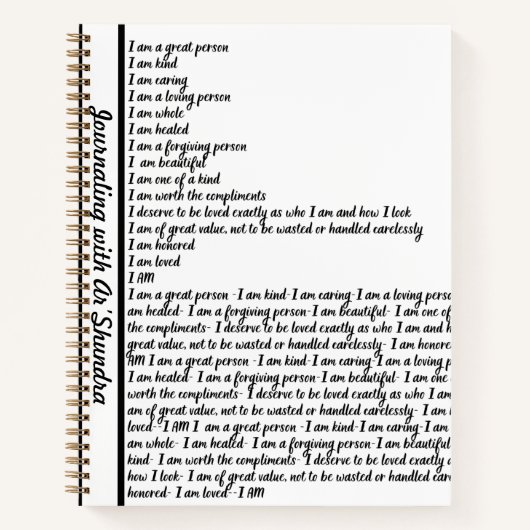 Journaling with Ar'Shundra
I am a great person
I am kind
I am caring
I am a loving person
I am whole
I am healed
I am a forgiving person
I am beautiful
I am one of a kind
I am worth the compliments
I deserve to be loved exactly as who I am and how I look
I am of great value, not to be wasted or handled carelessly
I am honored
I am loved
I AM
I am a great person -I am kind-I am caring-I am a loving perso
am healed- I am a forgiving person-I am beautiful- I am one of
the compliments- I deserve to be loved exactly as who I am and h
great value, not to be wasted or handled carelessly- I am honore
AM I am a great person -I am kind-I am caring-I am a loving p
I am healed- I am a forgiving person-I am beautiful- I am one
worth the compliments- I deserve to be loved exactly as who I a
am of great value, not to be wasted or handled carelessly- I am h
loved--I AM I am a great person -I am kind-I am caring-I am
am whole- I am healed- I am a forgiving person-I am beautiful
kind- I am worth the compliments- I deserve to be loved exactly a
how I look- I am of great value, not to be wasted or handled care
honored- I am loved--I AM